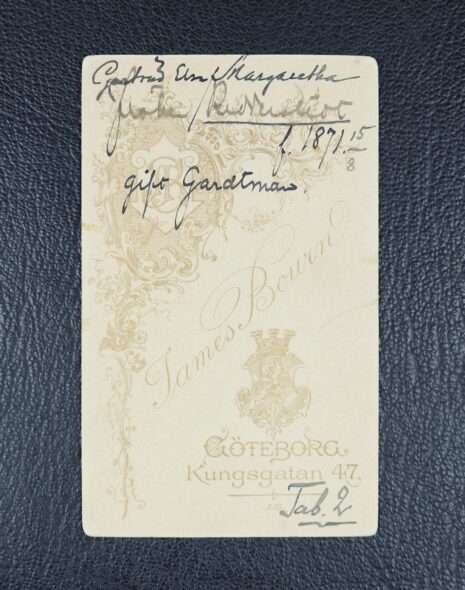 Gertrud Elin Margaretha
Ridderstedt
f. 1871. 15/8
gift Gardtman
James Bourn
GÖTEBORG
Kungsgatan 47.
Tab. 2